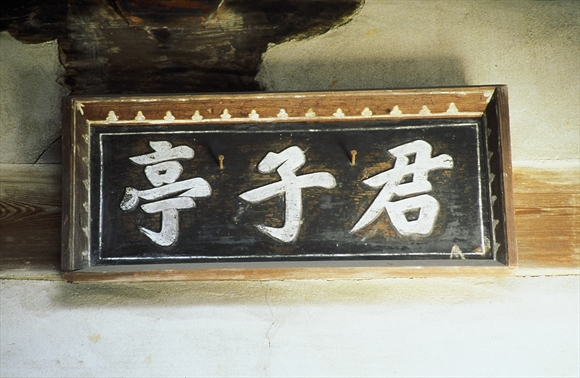 君子亭